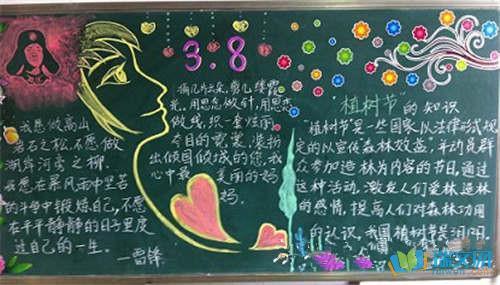 3.8
我愿做高山
岩石之松,不愿做
湖岸河旁之柳。
我愿在暴风雨中艰苦
的斗争中锻炼自己,不愿
在平平静静的日子里度
过自己的一生。
—雷锋
摘几片云朵,剪几缕霞
光,用思念做针,用思恋
做线,织一套恒雨
今日的霓裳,装扮
出倾国倾城的您,我
心中最美丽的妈
妈。
"植树节"的知识
植树节是一些国家以法律形式规
定的以宣传森林效益,并动员群
众参加造林为内容的节日,通过
这种活动,激发人们爱林造林
的感情,提高人们对森林功用
的认识,我国植树节是3月12